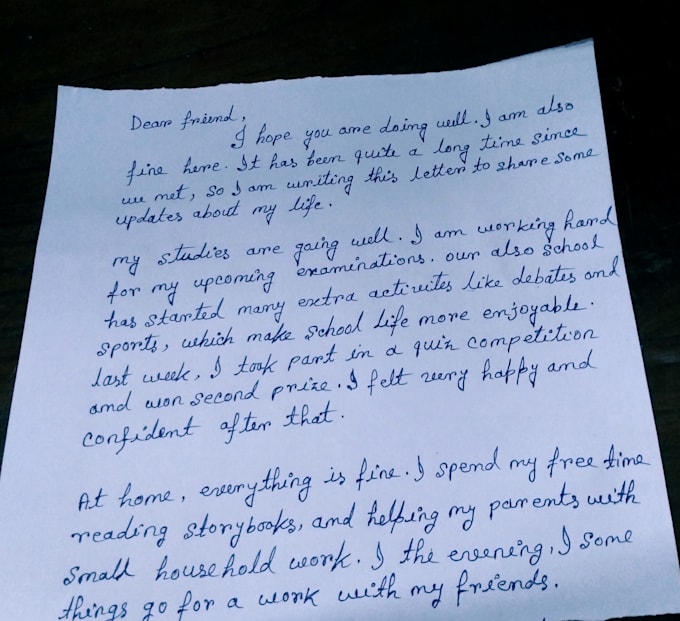 Dear friend,
I hope you are doing well. I am also
fine here. It has been quite a long time since
we met, so I am writing this letter to share some
updates about my life.
my studies are going well. I am working hard
for my upcoming examinations. our also school
has started many extra activites like debates and
sports, which make school life more enjoyable.
last week, I took part in a quiz competition
and won second prize. I felt very happy and
confident after that.
At home, everything is fine. I spend my free time
reading storybooks, and helping my parents with
small household work. I the evening, I some
things go for a work with my friends.